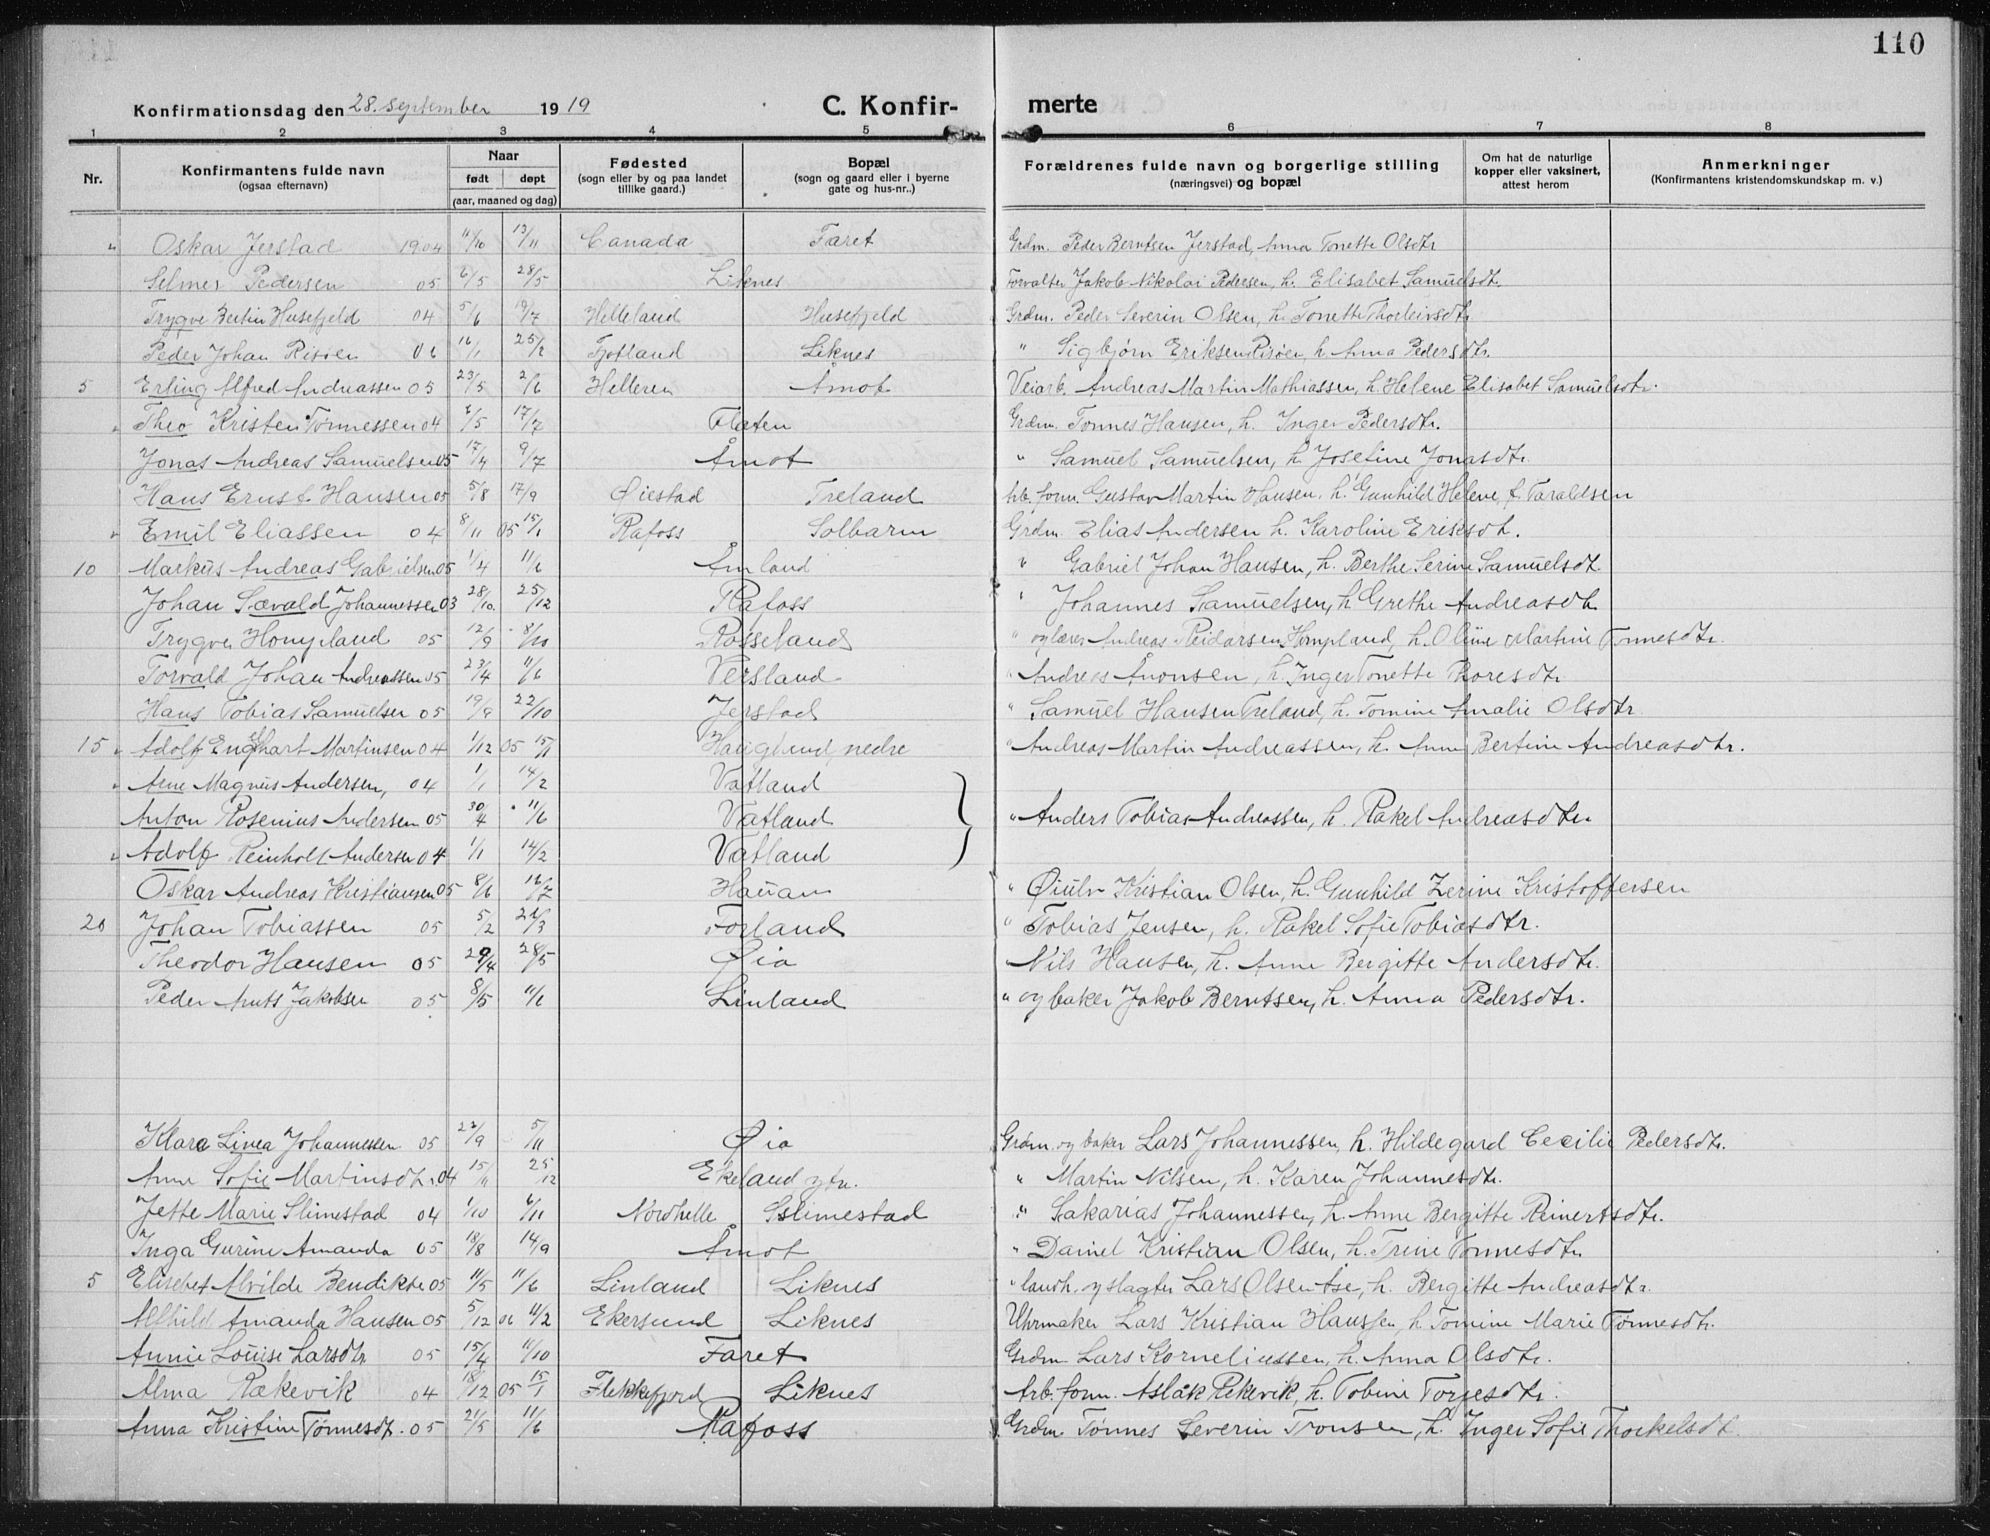 110
Konfirmationsdag den 28. september 1919 C. Konfir- merte
1 2 3 4 5 6 7 8
Nr. Konfirmantens fulde navn (ogsaa efternavn) Naar født døpt (aar, maaned og dag) Fødested (sogn eller by og paa landet tillike gaard.) Bopæl (sogn og gaard eller i byerne gate og hus-nr..) Forældrenes fulde navn og borgerlige stilling (næringsvei) og bopæl Om hat de naturlige kopper eller vaksinert, attest herom Anmerkninger (Konfirmantens kristendomskundskap m. v.)
" Oskar Jerstad 1904 11/10 13/11 Canada Faret Grdm. Peder Berntsen Jerstad, Anna Tonette Olsdtr
Selmer Pedersen 05 6/5 28/5 Liknes Forvalter Jakob Nikolai Pedersen, h. Elisabet Samuelsdtr.
Trygve Bertin Husefjeld 04 5/6 19/7 Helleland Husefjeld Grdm. Peder Severin Olsen, h. Tonette Thorleivsdtr
Peder Johan Risøen 06 16/1 25/2 Fjotland Liknes " Sigbjørn Eriksen Risøen, h. Anna Pedersdtr.
5 Erling Alfred Andreassen 05 23/5 2/6 Helleren Åmot Veiarb. Andreas Martin Mathiassen, h. Helene Elisabet Samuelsdtr.
" Theo Kristen Tønnessen 04 6/5 17/7 Flaten Grdm. Tonnes Hansen, h. Inger Pedersdtr.
Jonas Andreas Samuelsen 05 17/4 9/7 Åmot " Samuel Samuelsen, h. Josefine Jonasdtr.
Hans Ernst Hansen 05 5/8 17/9 Øiestad Treland Arb. form. Gustav Martin Hansen, h. Gunhild Helene, f. Taraldsen
" Emil Eliassen 04 8/11 05 15/1 Rafoss Solbarm Grdm. Elias Andersen h. Karoline Eriksdtr.
10 Markus Andreas Gabrielsen 05 1/4 11/6 Åmland " Gabriel Johan Hansen, h. Berthe Serine Samuelsdtr.
Johan Sævald Johannessen 03 28/10 25/12 Rafoss " Johannes Samuelsen, h Grethe Andreasdtr
Trygve Hompland 05 12/9 8/10 Rosseland " og lærer Andreas Reidarsen Hompland, h. Oline Martine Tønnesdtr.
Torvald Johan Andreassen 05 23/4 11/6 Versland " Andreas Aronsen, h. Inger Tonette Thoresdtr
Hans Tobias Samuelsen 05 19/9 22/10 Jerstad " Samuel Hansen Treland, h. Tomine Amalie Olsdtr.
15 " Adolf Enghart Martinsen 04 1/12 05 15/1 Haugland, nedre " Andreas Martin Andreassen, h. Anne Bertine Andreasdtr.
" Arne Magnus Andersen, 04 1/1 14/2 Vatland
Anton Rosenius Andersen 05 30/4 11/6 Vatland } " Anders Tobias Andreassen, h. Rakel Andreasdtr.
" Adolf Reinholt Andersen 04 1/1 14/2 Vatland
Oskar Andreas Kristiansen 05 8/6 16/7 Hauan " Øiulv Kristian Olsen, h. Gunhild Zerine Kristoffersen
20 Johan Tobiassen 05 5/2 Forland " Tobias Jensen, h. Rakel Sofie Tobiasdtr.
Theodor Hansen 05 29/4 28/5 Øia " Nils Hansen, h. Anne Bergitte Andersdtr.
Peder Jakobsen 05 8/5 11/6 Linland " og baker Jakob Berntsen, h. Anna Pedersdtr.
Klara Linea Johannessen 05 22/9 5/11 Øia Grdm. og baker Lars Johannessen, h. Hildegard Cecilie Pedersdtr.
Anne Sofie Martinsdtr. 04 15/11 25/12 Ekeland ytr. " Martin Nilsen, h. Karen Johannesdtr.
Jette Marie Slimestad 04 1/10 6/11 Nordhelle Sslimestad " Sakarias Johannessen, h. Anne Bergitte Reinertsdtr.
Inga Gurine Amanda 05 18/8 14/9 Åmot " Daniel Kristian Olsen, h. Trine Tønnesdtr
5 Elisebet Alvilde Bendikte 05 11/5 11/6 Linland Liknes " landh. og slagter Lars Olsen Åse, h. Bergitte Andreasdtr.
Alfhild Amanda Hansen 05 5/12 06 11/2 Ekersund Liknes Uhrmaker Lars Kristian Hanssen, h. Tomine Marie Tønnesdtr.
Annie Louise Larsdtr 05 15/4 11/10 Faret Grdm Lars Korneliussen, h. Anna Olsdtr.
Alma Rækevik 04 18/12 05 15/1 Flekkefjord Liknes Arb. form. Aslak Rekevik, h. Tobine Torjesdtr.
Anna Kristine Tønnesdt. 05 21/5 11/6 Rafoss Grdm Tønnes Severin Tronsen, h. Inger Sofie Thorkelsdt.